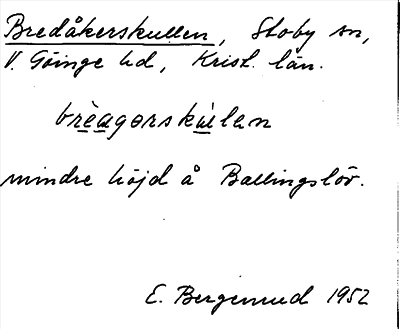 Bredåkerskullen, Stoby sn,
V. Göinge hd, Krist. län.
brèagərskùlən
mindre höjd å Ballingslöv.
E. Bergemud 1952